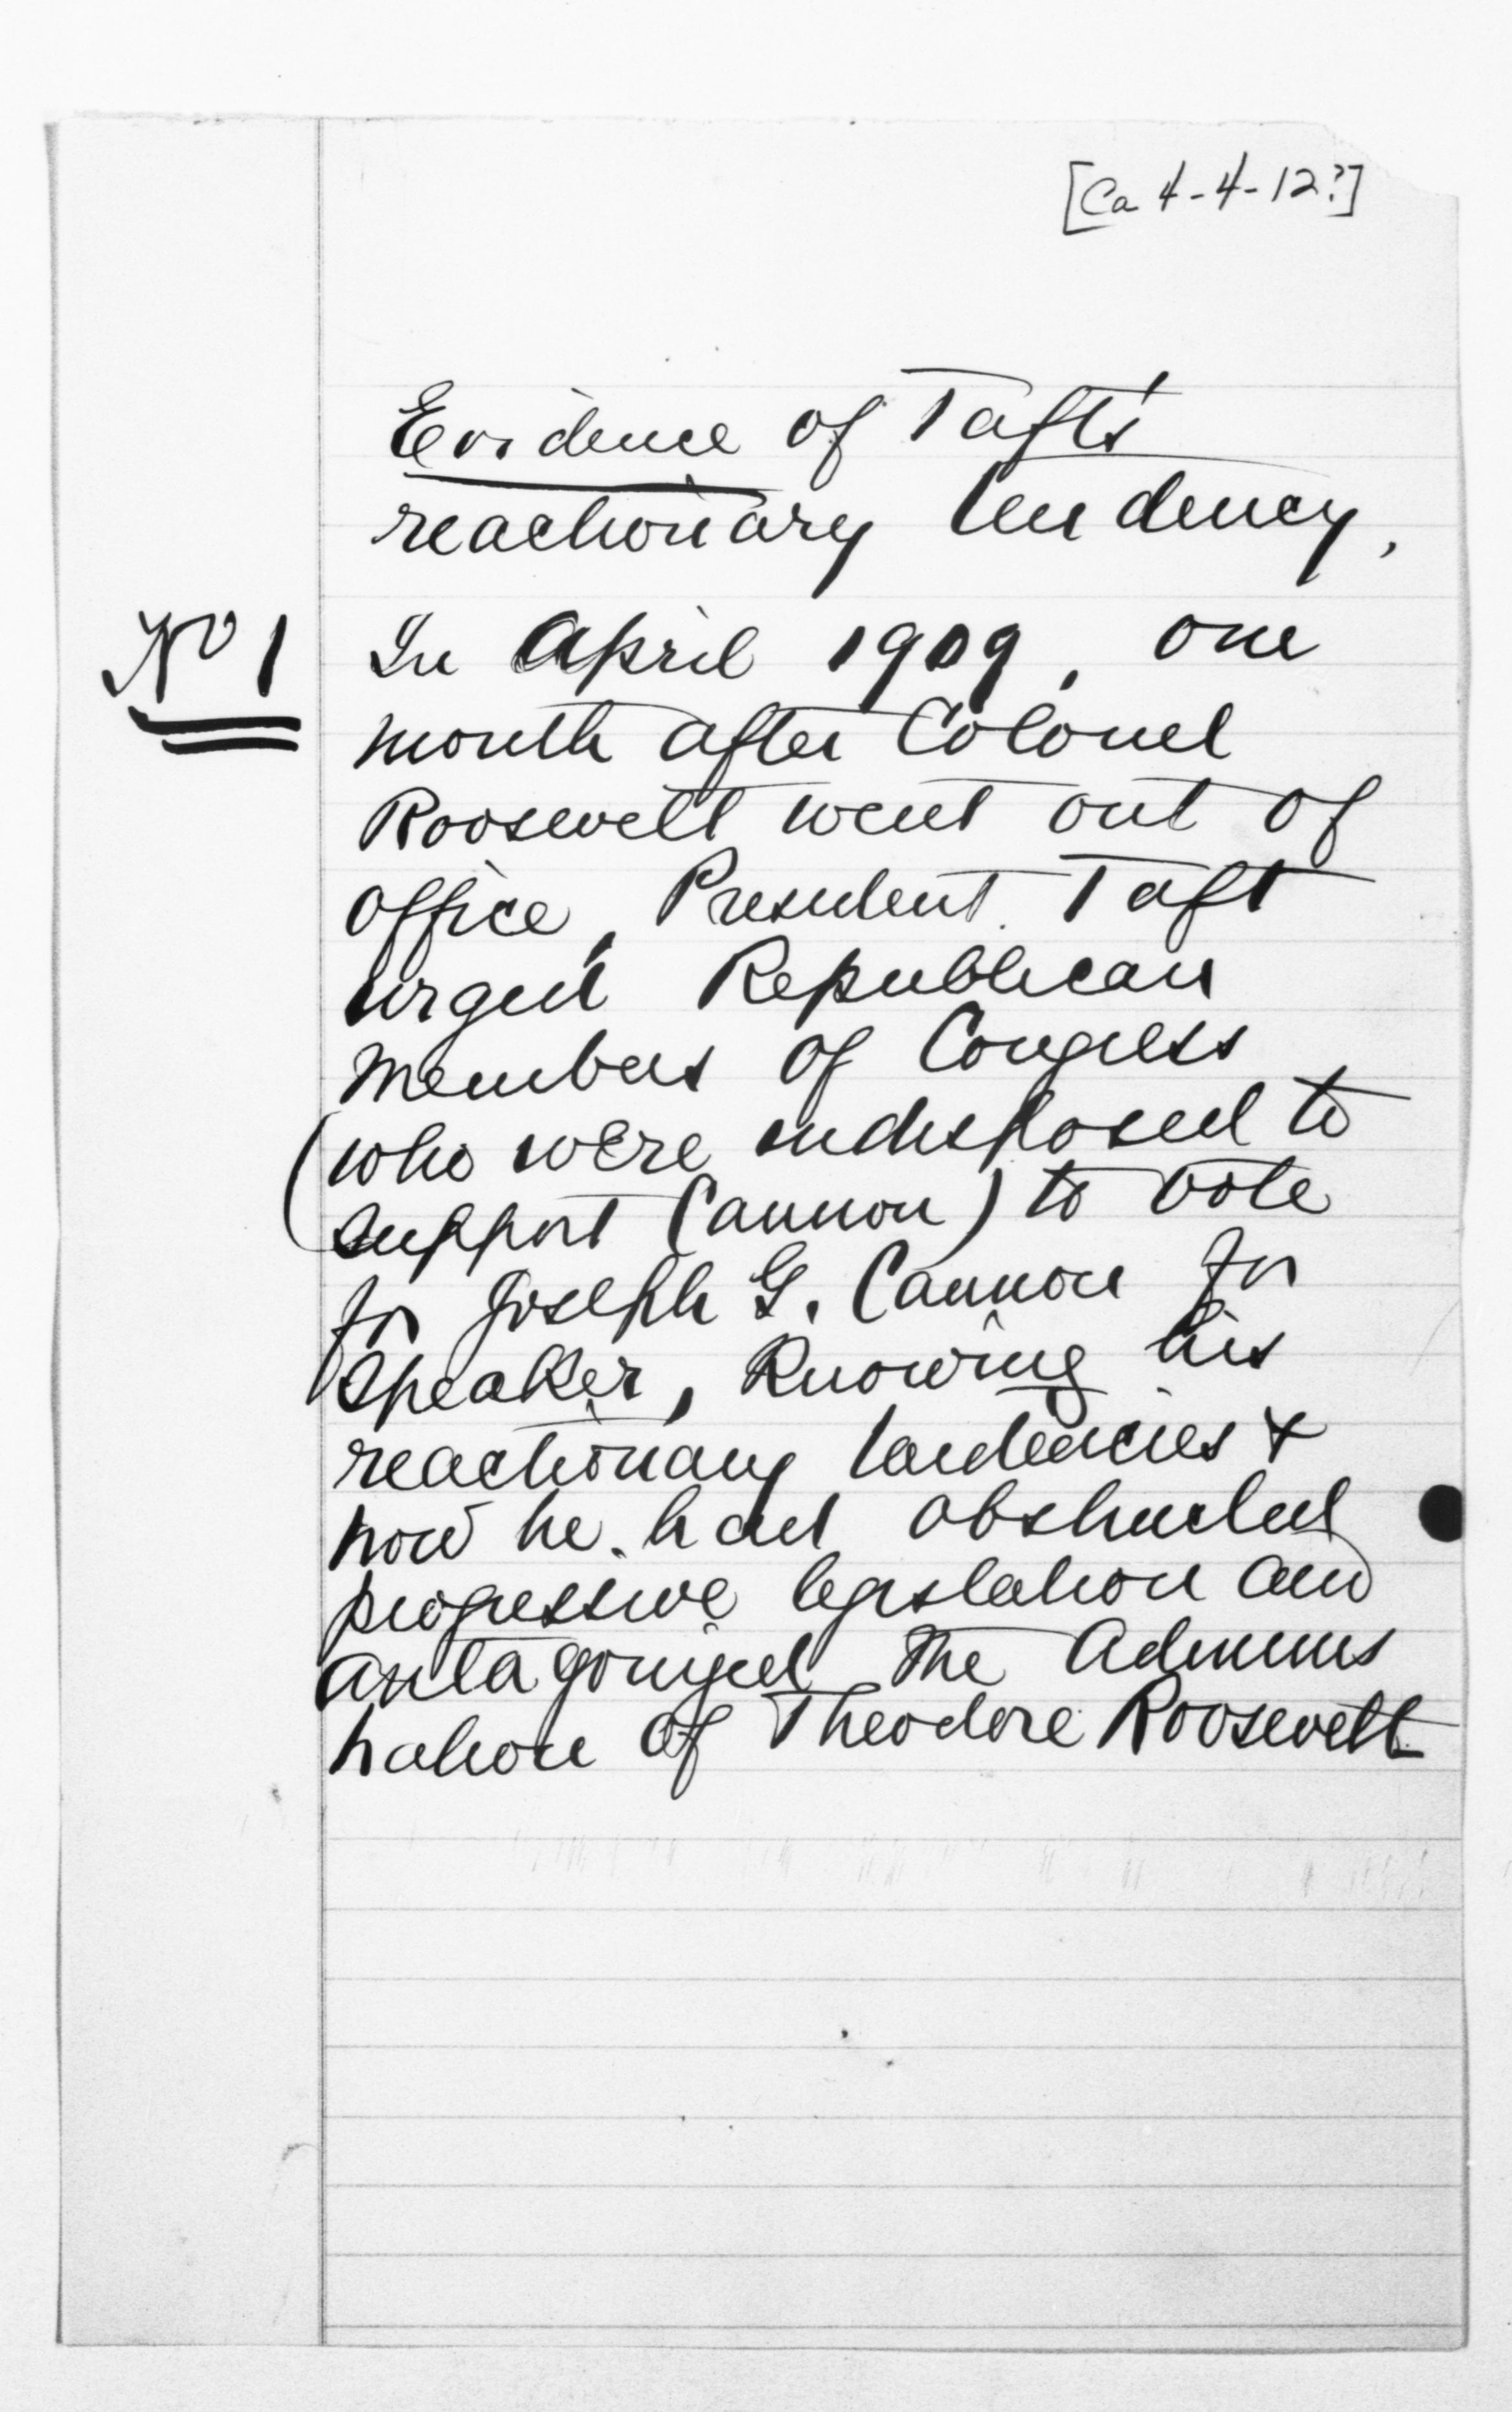 [Ca 4-4-12?]
Evidence of Taft's
reactionary tendency,
No 1
In April 1909, one
month after Colonel
Roosevelt went out of
office, President Taft
urged Republican
members of Congress
(who were indisposed to
support Cannon) to vote
for Joseph G. Cannon for
speaker, knowing his
reactionary tendencies &
how he had obstructed
progressive legislation and
antagonized the Adminis
tration of Theodore Roosevelt